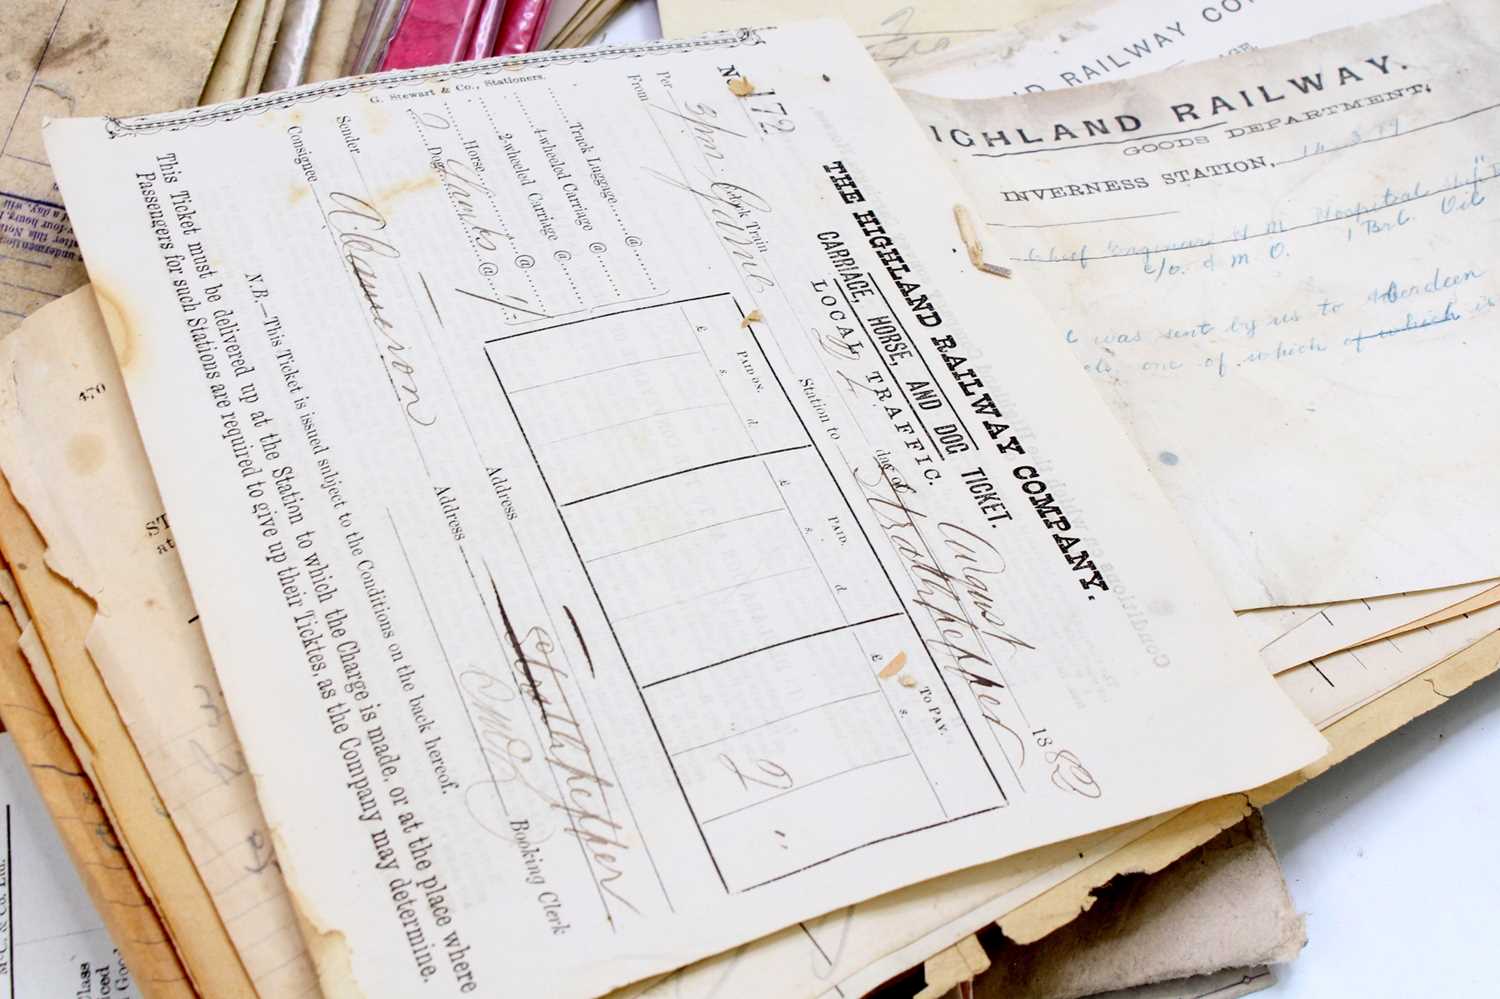 No 172
THE HIGHLAND RAILWAY COMPANY.
CARRIAGE, HORSE, AND DOG TICKET.
LOCAL TRAFFIC.
Per 3/pm o'clock Train day of August 1882
From Station to Strathpeffer
Truck Luggage ...... @
4-wheeled Carriage @
2-wheeled Carriage @
Horse ...... @
2 Dog @ 1/
PAID ON. PAID. TO PAY.
£ s. d. £ s. d £ s.
2 "
Sender Address
Consignee A Cameron Address Strathpeffer
Booking Clerk
N.B.—This Ticket is issued subject to the Conditions on the back hereof.
This Ticket must be delivered up at the Station to which the Charge is made, or at the place where
Passengers for such Stations are required to give up their Tickets, as the Company may determine.
G. Stewart & Co., Stationers.
ND RAILWAY CO
AGE,
IGHLAND RAILWAY.
GOODS DEPARTMENT,
INVERNESS STATION,
Chief Engineer H M Hospital Ship
c/o. S M O. 1 Brl. Oil
was sent by us to Aberdeen
one of which of which is
470
M'C. & Co. Ltd.